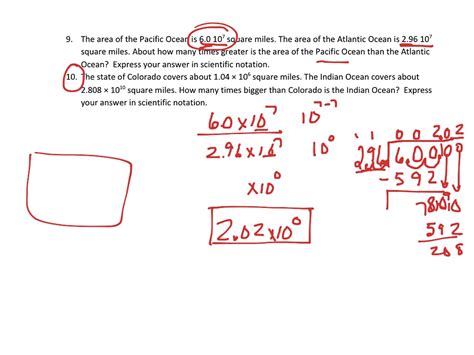 9. The area of the Pacific Ocean is 6.0 10⁷ square miles. The area of the Atlantic Ocean is 2.96 10⁷
square miles. About how many times greater is the area of the Pacific Ocean than the Atlantic
Ocean? Express your answer in scientific notation.
10. The state of Colorado covers about 1.04 × 10⁶ square miles. The Indian Ocean covers about
2.808 × 10¹⁰ square miles. How many times bigger than Colorado is the Indian Ocean? Express
your answer in scientific notation.
6.0 × 10⁷
2.96 × 10⁷
10⁷⁻⁷
10⁰
× 10⁰
2.02 × 10⁰
1 1 0 0 2.0 2
2.96 6.0 0 0 0
- 5 9 2
5 9 2
2 0 8